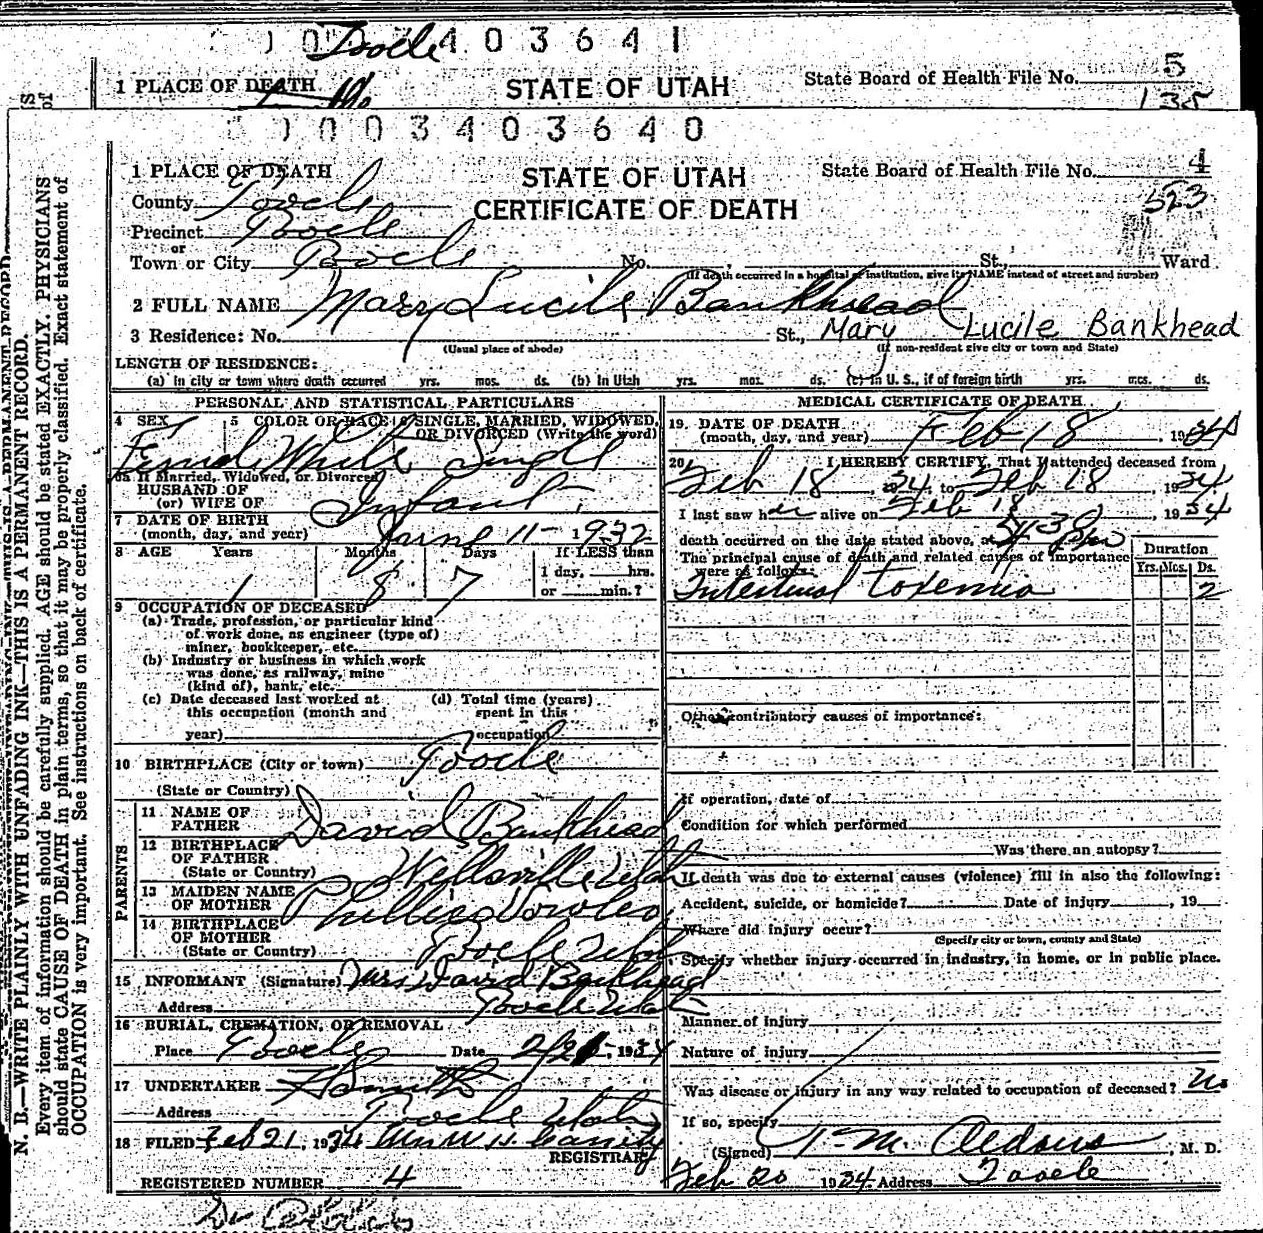 0 3 4 0 3 6 4 1
Tooele
1 PLACE OF DEATH STATE OF UTAH State Board of Health File No. 5
135
0 0 0 3 4 0 3 6 4 0
1 PLACE OF DEATH STATE OF UTAH State Board of Health File No. 4
County Tooele CERTIFICATE OF DEATH 523
Precinct Tooele
or
Town or City Tooele No. St., Ward
(If death occurred in a hospital or institution, give its NAME instead of street and number)
2 FULL NAME Mary Lucile Bankhead
3 Residence: No. St., Mary Lucile Bankhead
(Usual place of abode) (If non-resident give city or town and State)
LENGTH OF RESIDENCE:
(a) In city or town where death occurred yrs. mos. ds. (b) In Utah yrs. mos. ds. (c) In U. S., if of foreign birth yrs. mos. ds.
PERSONAL AND STATISTICAL PARTICULARS
4 SEX 5 COLOR OR RACE 6 SINGLE, MARRIED, WIDOWED,
OR DIVORCED (Write the word)
Female White Single
6a If Married, Widowed, or Divorced
HUSBAND OF
(or) WIFE OF Infant
7 DATE OF BIRTH
(month, day, and year) June 11 - 1932
8 AGE Years Months Days If LESS than
1 day, hrs.
1 8 7 or min.?
9 OCCUPATION OF DECEASED
(a) Trade, profession, or particular kind
of work done, as engineer (type of)
miner, bookkeeper, etc.
(b) Industry or business in which work
was done, as railway, mine
(kind of), bank, etc.
(c) Date deceased last worked at (d) Total time (years)
this occupation (month and spent in this
year) occupation
10 BIRTHPLACE (City or town) Tooele
(State or Country)
PARENTS
11 NAME OF
FATHER David Bankhead
12 BIRTHPLACE
OF FATHER Wellsville Utah
(State or Country)
13 MAIDEN NAME
OF MOTHER
14 BIRTHPLACE
OF MOTHER Tooele Utah
(State or Country)
15 INFORMANT (Signature) Mrs David Bankhead
Address Tooele Utah
16 BURIAL, CREMATION, OR REMOVAL
Place Tooele Date 1934
17 UNDERTAKER
Address Tooele Utah
18 FILED Feb 21, 1934 Mrs W. H.
REGISTRAR
REGISTERED NUMBER 4
MEDICAL CERTIFICATE OF DEATH
19. DATE OF DEATH
(month, day, and year) Feb 18, 1934
20 I HEREBY CERTIFY, That I attended deceased from
Feb 18, 34, to Feb 18, 1934
I last saw her alive on Feb 18, 1934
death occurred on the date stated above, at
The principal cause of death and related causes of importance
were as follows: Duration
Yrs. Mos. Ds.
Intestinal toxemia 2
Other contributory causes of importance:
If operation, date of
Condition for which performed
Was there an autopsy?
If death was due to external causes (violence) fill in also the following:
Accident, suicide, or homicide? Date of injury, 19
Where did injury occur?
(Specify city or town, county and State)
Specify whether injury occurred in industry, in home, or in public place.
Manner of injury
Nature of injury
Was disease or injury in any way related to occupation of deceased? no
If so, specify
(Signed) M. D.
Feb 20 1934 Address Tooele
N. B.—WRITE PLAINLY WITH UNFADING INK—THIS IS A PERMANENT RECORD.
Every item of information should be carefully supplied. AGE should be stated EXACTLY. PHYSICIANS
should state CAUSE OF DEATH in plain terms, so that it may be properly classified. Exact statement of
OCCUPATION is very important. See instructions on back of certificate.